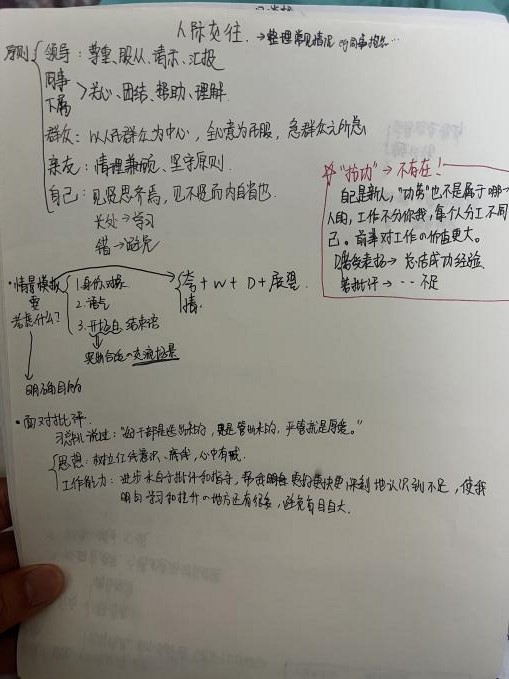 人际交往. → 整理常见情况 eg同事抱怨…
原则
领导：尊重、服从、请示、汇报
同事
下属
关心、团结、帮助、理解.
群众：以人民群众为中心，全心意为民服，急群众之所急
亲友：情理兼顾、坚守原则.
自己：见贤思齐焉，见不贤而内自省也.
长处→学习
错→避免
"抢功"→不存在！
自己是新人，"功劳"也不是属于哪一
人的，工作不分你我，每个人分工不同
己。前辈对工作の价值更大。
若受表扬→总结成功经验
若批评→ ‥ 不足
·情景模拟
要
考虑什么？
1.身份.对象
2.语气
3.开场白.结束语
夸+W+D+展望.
情.
交流场景
明确目的
·面对批评.
说过："好干部都是选出来的，更是管出来的，严管就是厚爱。"
思想：树立红线意识、底线，心中有戒.
工作能力：进步来自于批评和指导，帮我更快更深刻地认识到不足，使我
明白学习和提升の地方还有很多，避免盲目自大.